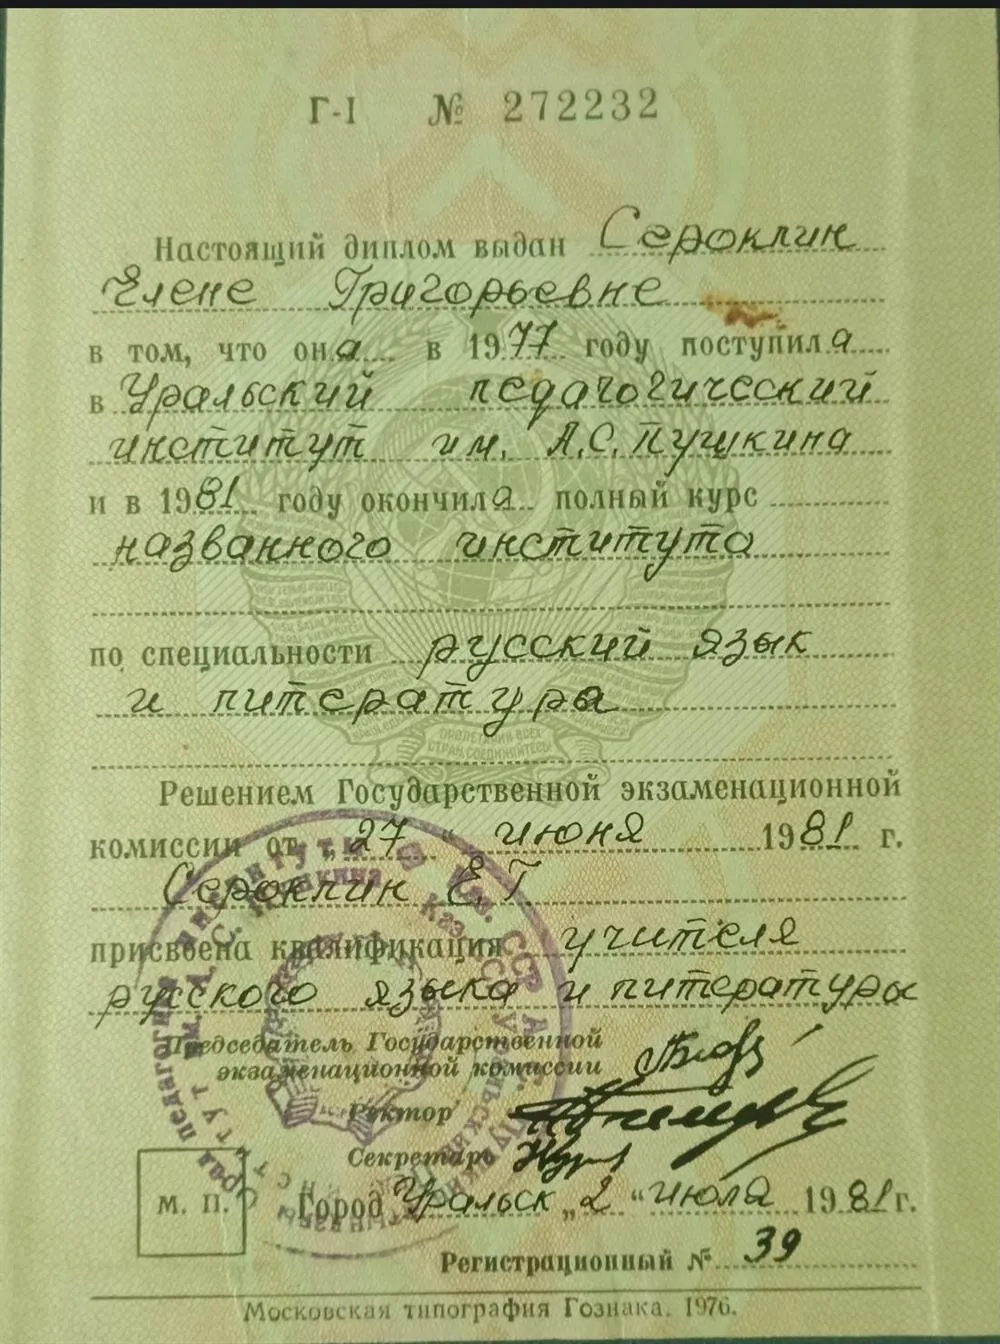 Г-I № 272232
Настоящий диплом выдан Сероклин
Елене Григорьевне
в том, что она в 1977 году поступила
в Уральский педагогический
институт им. А.С. Пушкина
и в 1981 году окончила полный курс
названного института
по специальности русский язык
и литература
Решением Государственной экзаменационной
комиссии от „27“ июня 1981 г.
Сероклин Е.Г.
присвоена квалификация учителя
русского языка и литературы
Председатель Государственной
экзаменационной комиссии
Ректор
Секретарь
М. П. Город Уральск „2“ июля 1981 г.
Регистрационный № 39
Московская типография Гознака. 1976.